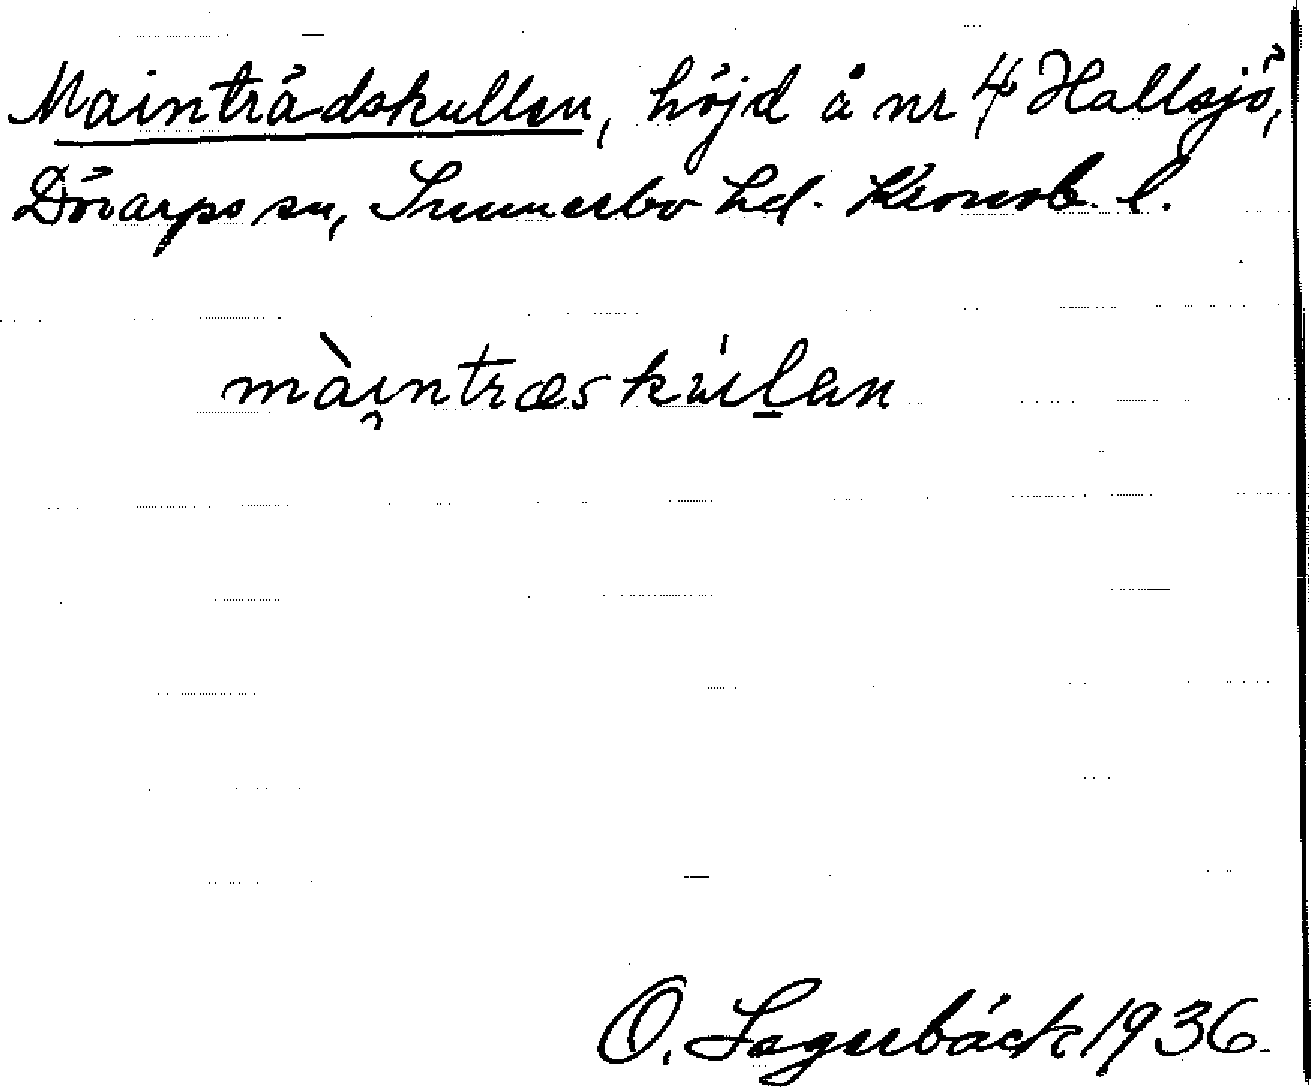 Mainträdskullen, höjd å nr 4 Hallsjö,
Dörarps sn, Sunnerbo hd. Kronob. l.
mài̯ntræskúl̲an
O. Lagerbäck 1936.